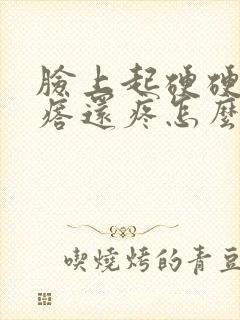 臉上起硬硬
痞還疼怎麼
喫燒烤的青豆